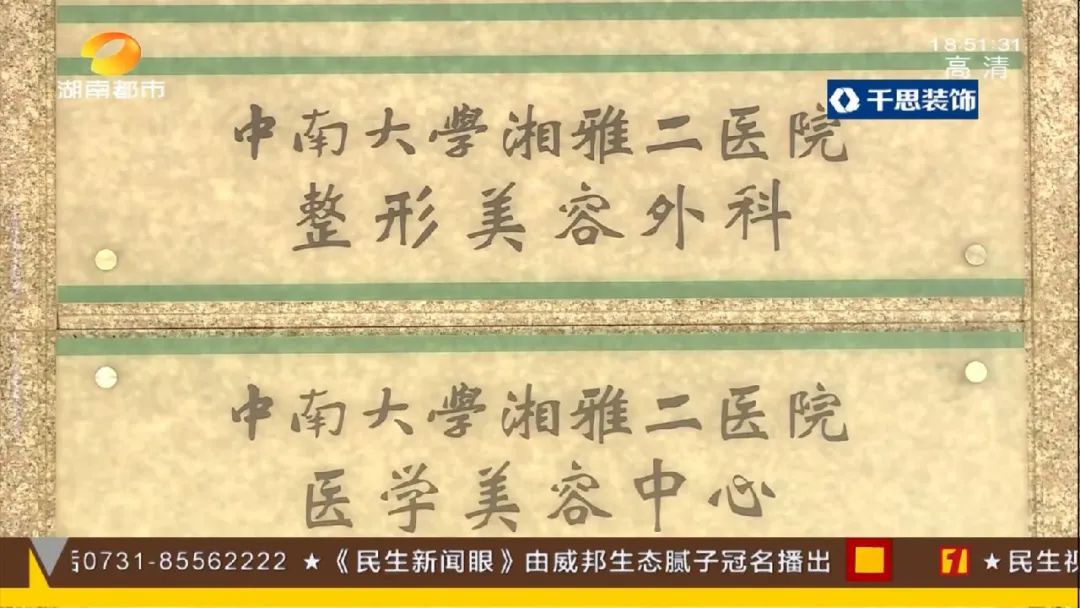 湖南都市
18:51:31
高清
千思装饰
中南大學湘雅二医院
整形美容外科
中南大學湘雅二医院
医学美容中心
0731-85562222 ★《民生新闻眼》由威邦生态腻子冠名播出 ★民生视